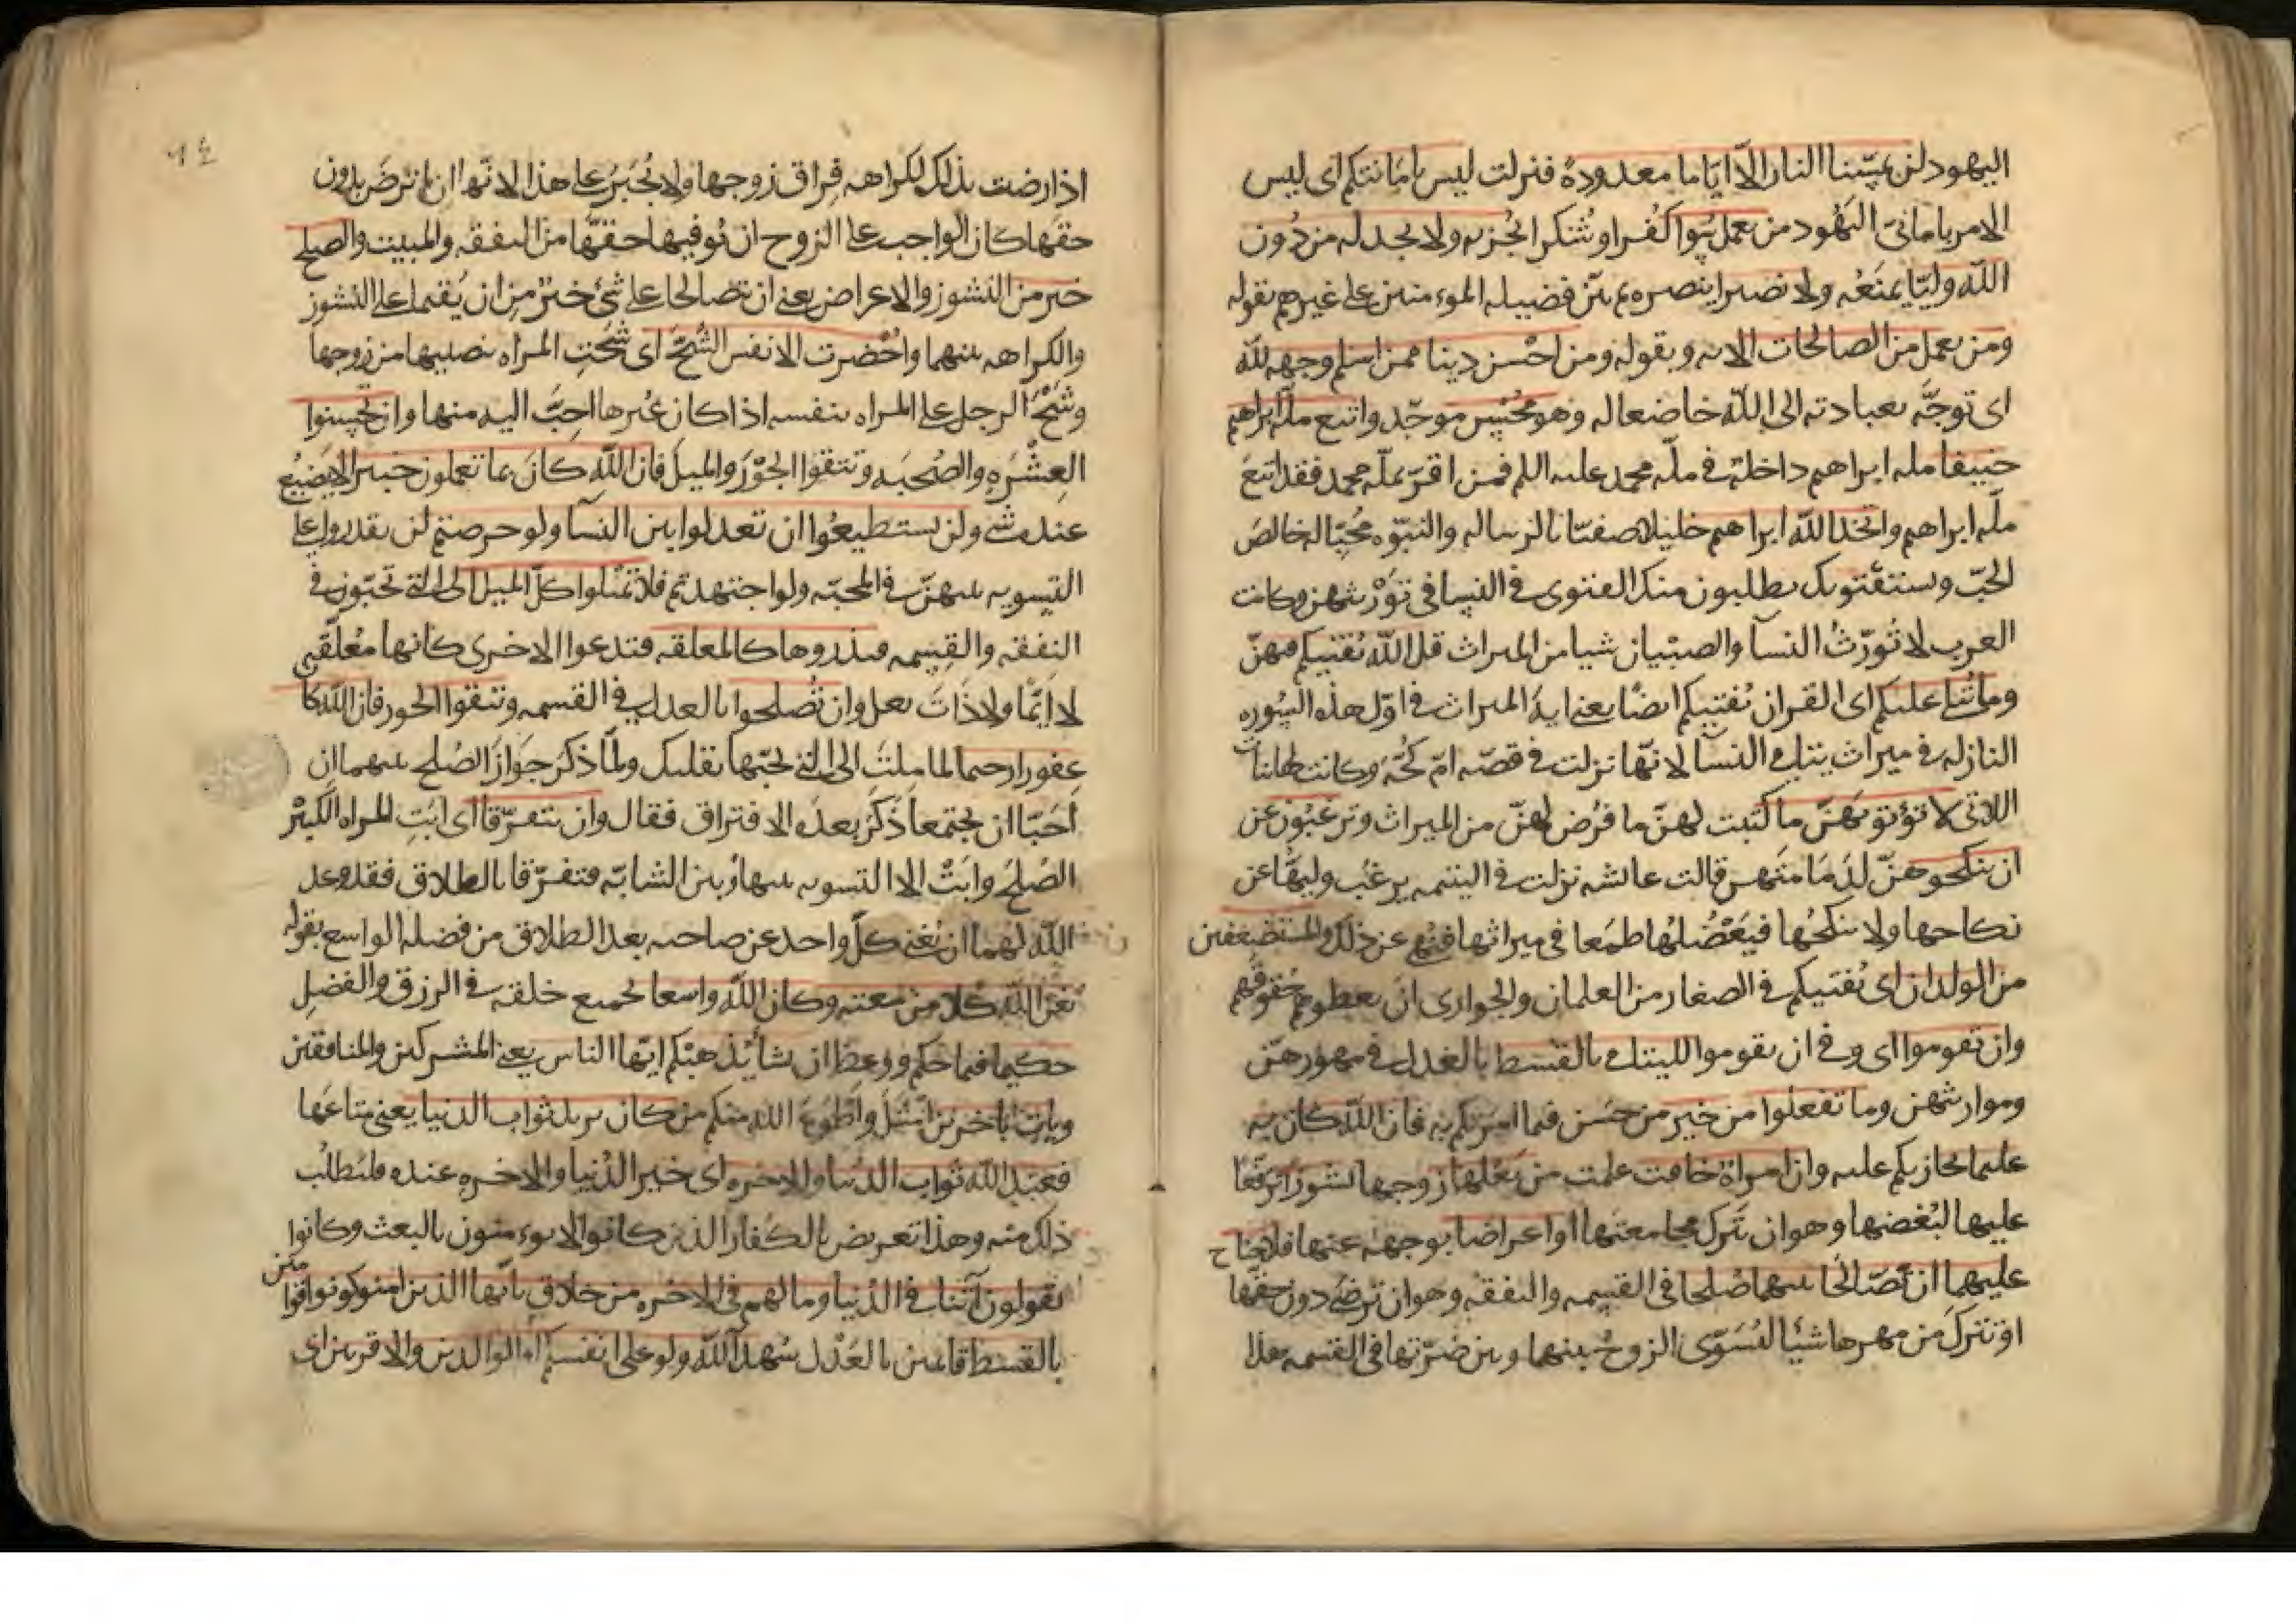 اليهود لن تمسّنا النار الّا ايّاما معدودة فنزلت ليس بامانيّكم اى ليس
الامر بامانىّ اليهود من يعمل سُوا كفرا وشركا يُجز به ولا يجد له من دُون
اللّه وليّا يمنَعُه ولا نصيرا ينصره ثم بيّن فضيله الموءمنين على غيرهم بقوله
ومن يعمل من الصالحات الايه وبقوله ومن احْسن دينا ممن اسلم وجهه للّه
اى توجّه بعبادته الى اللّه خاضعا له وهو مُحْسِن موحّد واتبع ملّة ابراهيم
حنيفا مله ابراهيم داخلة فى ملّه محمد عليه السلم فمن اقرّ بملّه محمد فقد اتبعَ
ملّه ابراهيم واتخذ اللّه ابراهيم خليلا صفيّا بالرساله والنبوّه مُحِبّا له خالصَ
الحُبّ ويستفتونك يطلبون منك الفتوى فى النسا فى تَوْريثهن وكانت
العرب لا تُورّثُ النسآ والصبْيان شيا من الميراث قل اللّه يُفتيكم فيهنّ
وما يُتلى عليكم اى القران يُفتيكم ايضًا يعنى اية الميراث فى اوّل هذه السُوره
النازله فى ميراث يتامى النسآ لانّها نزلت فى قصّه امّ كُحّه وكانت لها بنات
اللاتى لا تؤتونهنّ ما كُتبت لهنّ ما فُرض لهنّ من الميراث وترغبُون عن
ان تنكحوهنّ لدَمَامَتهن قالت عائشه نزلت فى اليتيمه يرغَب وليّها عن
نكاحها ولا يُنكحُها فيَعْضُلها طمَعا فى ميراثها فنُهى عن ذلك والمستضعفين
من الولدان اى يُفتيكم فى الصغار من الغلمان والجوارى ان يعطوهم حقوقهم
وان تقوموا اى وفى ان تقوموا لليتامى بالقسط بالعَدل فى مهورهنّ
ومواريثهن وما تفعلوا من خير من حسَن فيما امرتكم به فان اللّه كان به
عليما يجازيكم عليه وان امراة خافت علمت من بَعْلها زوجها نشوزا ترفّعًا
عليها لبُغضها وهو ان يَترك مجامعتها او اعراضا بوجهه عنها فلا جناح
عليهما ان يَصّالحا بينهما صُلحا فى القسمه والنفقه وهو ان ترضى دون حقّها
او تترك من مهرها شيئا ليُسَوّى الزوجُ بينها وبين ضرّتها فى القسمه هذا
٦٤
اذا رضت بذلك لكراهه فِراق زوجها ولا تُجْبَرُ على هذا لانّها ان لم ترضَ بدون
حقها كان الواجب على الزوج ان يُوفيها حقّها من النفقه والمبيت والصلح
خير من النشوز والاعراض يعنى ان يتصالحا على شئ خيرٌ من ان يُقيما على النشوز
والكراهه بينهما واُحْضرت الانفس الشُحّ اى شَحّتِ المراه بنصيبها من زوجها
وشَحّ الرجل على المراه بنفسه اذا كان غيرها احبّ اليه منها وان تُحسنوا
العِشْرة والصُحبَه وتتقوا الجَوْر والميل فان اللّه كان بما تعملون خبيرا لا يَضيعُ
عنده شى ولن تستطيعُوا ان تعدلوا بين النسآ ولو حرصتم لن تقدروا على
التسويه بينهنّ فى المحبّه ولو اجتهدتم فلا تميلوا كلّ الميل الى التى تحبّون فى
النفقه والقِسمه فتذروها كالمعلقه فتدعوا الاخرى كانها مُعلّقه
لا ايّمًا ولا ذاتَ بعل وان تُصلحوا بالعدل فى القسمه وتتقوا الجور فان اللّه كا
غفورا رحيما لما ملتَ الى التى تحبّها بقلبك ولمّا ذكرَ جَوازَ الصُلح بينهما ان
احَبّا ان يجتمعا ذَكَر بعده الافتراق فقال وان يتفرّقا اى ابَتِ المراه الكبيرُ
الصُلحَ وابَتْ الا التسويه بينها وبين الشابّه فتفرّقا بالطلاق فقد وعد
اللّه لهما ان يُغنى كلّ واحد عن صاحبه بعد الطلاق من فضله الواسع بقوله
يُغن اللّه كلا من سعته وكان اللّه واسعا لجميع خلقه فى الرزق والفضلِ
حكيما فيما حكم ووعظ ان يشا يُذهبْكم ايّها الناس يعنى المشركين والمنافقين
ويات باخرين امْثَل واَطْوَعَ اللّه منكم من كان يريد ثواب الدنيا يعنى متاعَها
فعند اللّه ثواب الدنيا والاخره اى خير الدُنيا والاخرة عنده فليَطلُب
ذلك منه وهذا تعريض بالكفار الذين كانوا لا يوءمنون بالبعث وكانوا
يقولون آتنا فى الدُنيا وما لهم فى الاخره من خلاق يآيها الذين امنوا كونوا قوّامين
بالقسط قائمين بالعَدْل شهدآ للّه ولو على انفسكم او الوالدين والاقربين اى